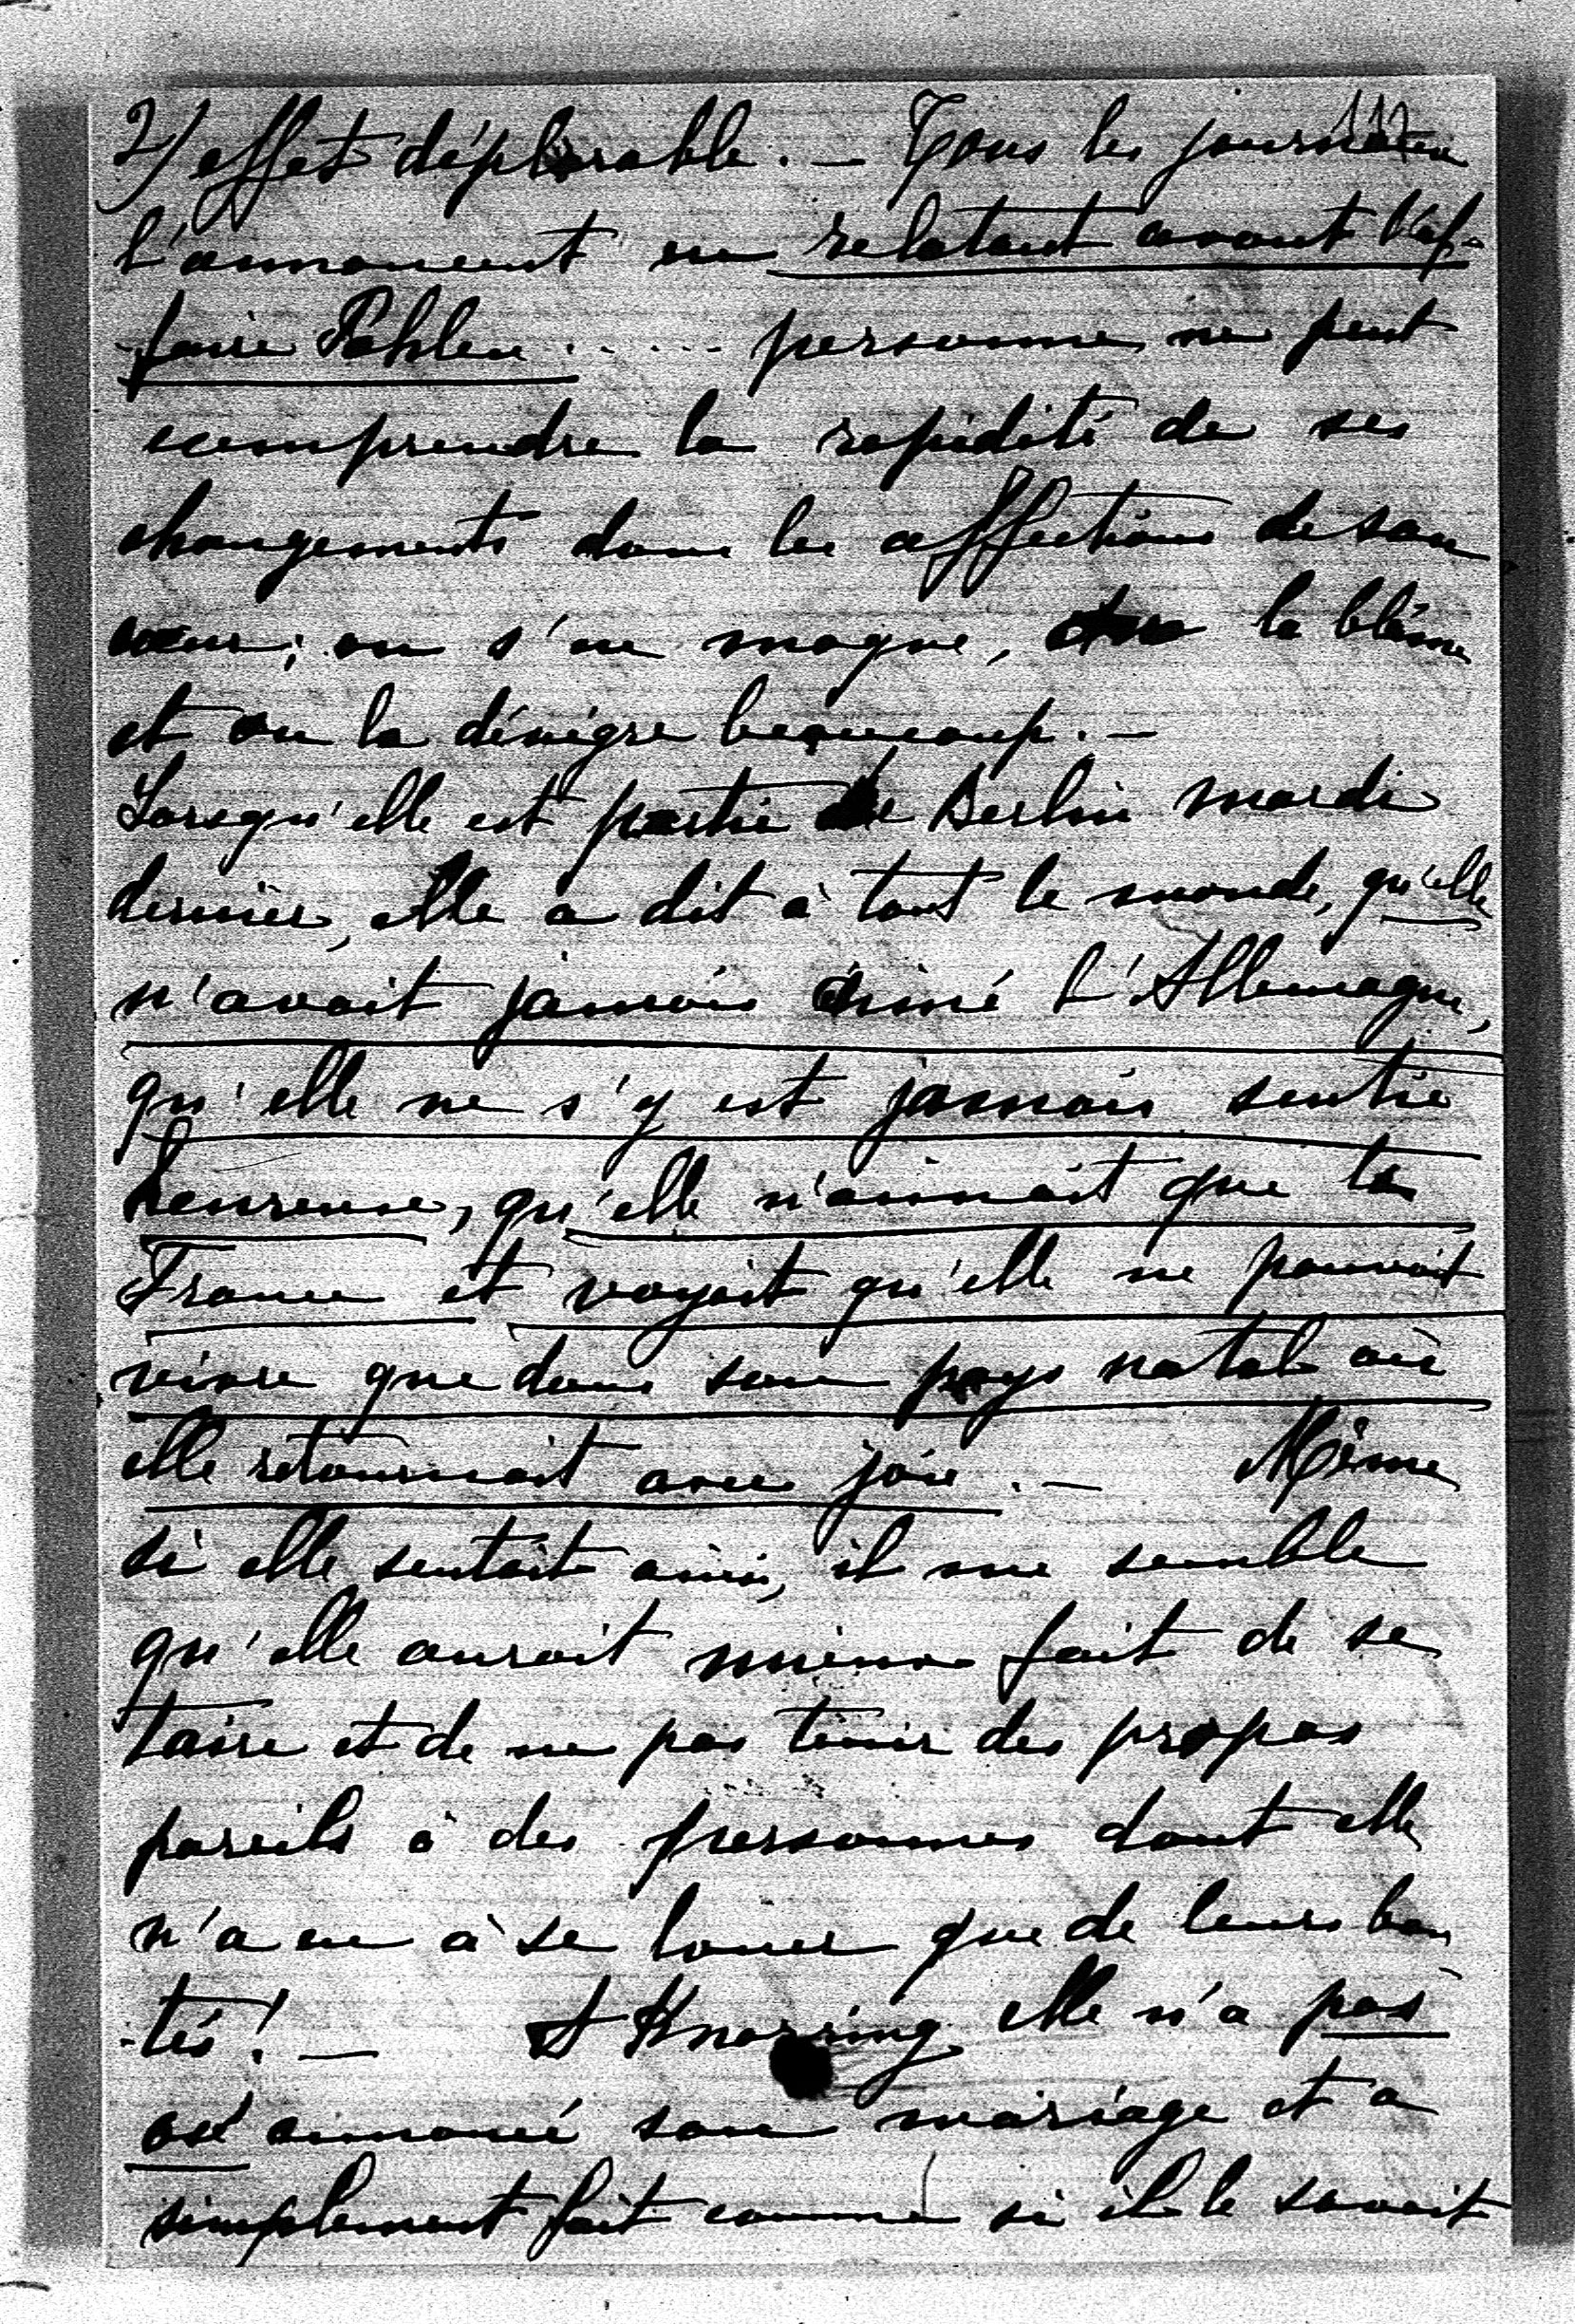 2) effet déplorable. — Tous les journaux
l'annoncent en relatant avant l'af-
-faire Pahlen ..... personne ne peut
comprendre la rapidité de ses
changements dans les affections de son
cœur; on s'en moque, on la blâme
et on la dénigre beaucoup. —
Lorsqu'elle est partie de Berlin mardi
dernier, elle a dit à tout le monde, qu'elle
n'avait jamais aimé l'Allemagne,
qu'elle ne s'y est jamais sentie
heureuse, qu'elle n'aimait que la
France et voyait qu'elle ne pouvait
vivre que dans son pays natal où
elle retournait avec joie. — Même
si elle sentait ainsi, il me semble
qu'elle aurait mieux fait de se
taire et de ne pas tenir des propos
pareils à des personnes dont elle
n'a eu à se louer que de leurs bon
-tés! — A Knorring elle n'a pas
osé annoncé son mariage et a
simplement fait comme si il le savait